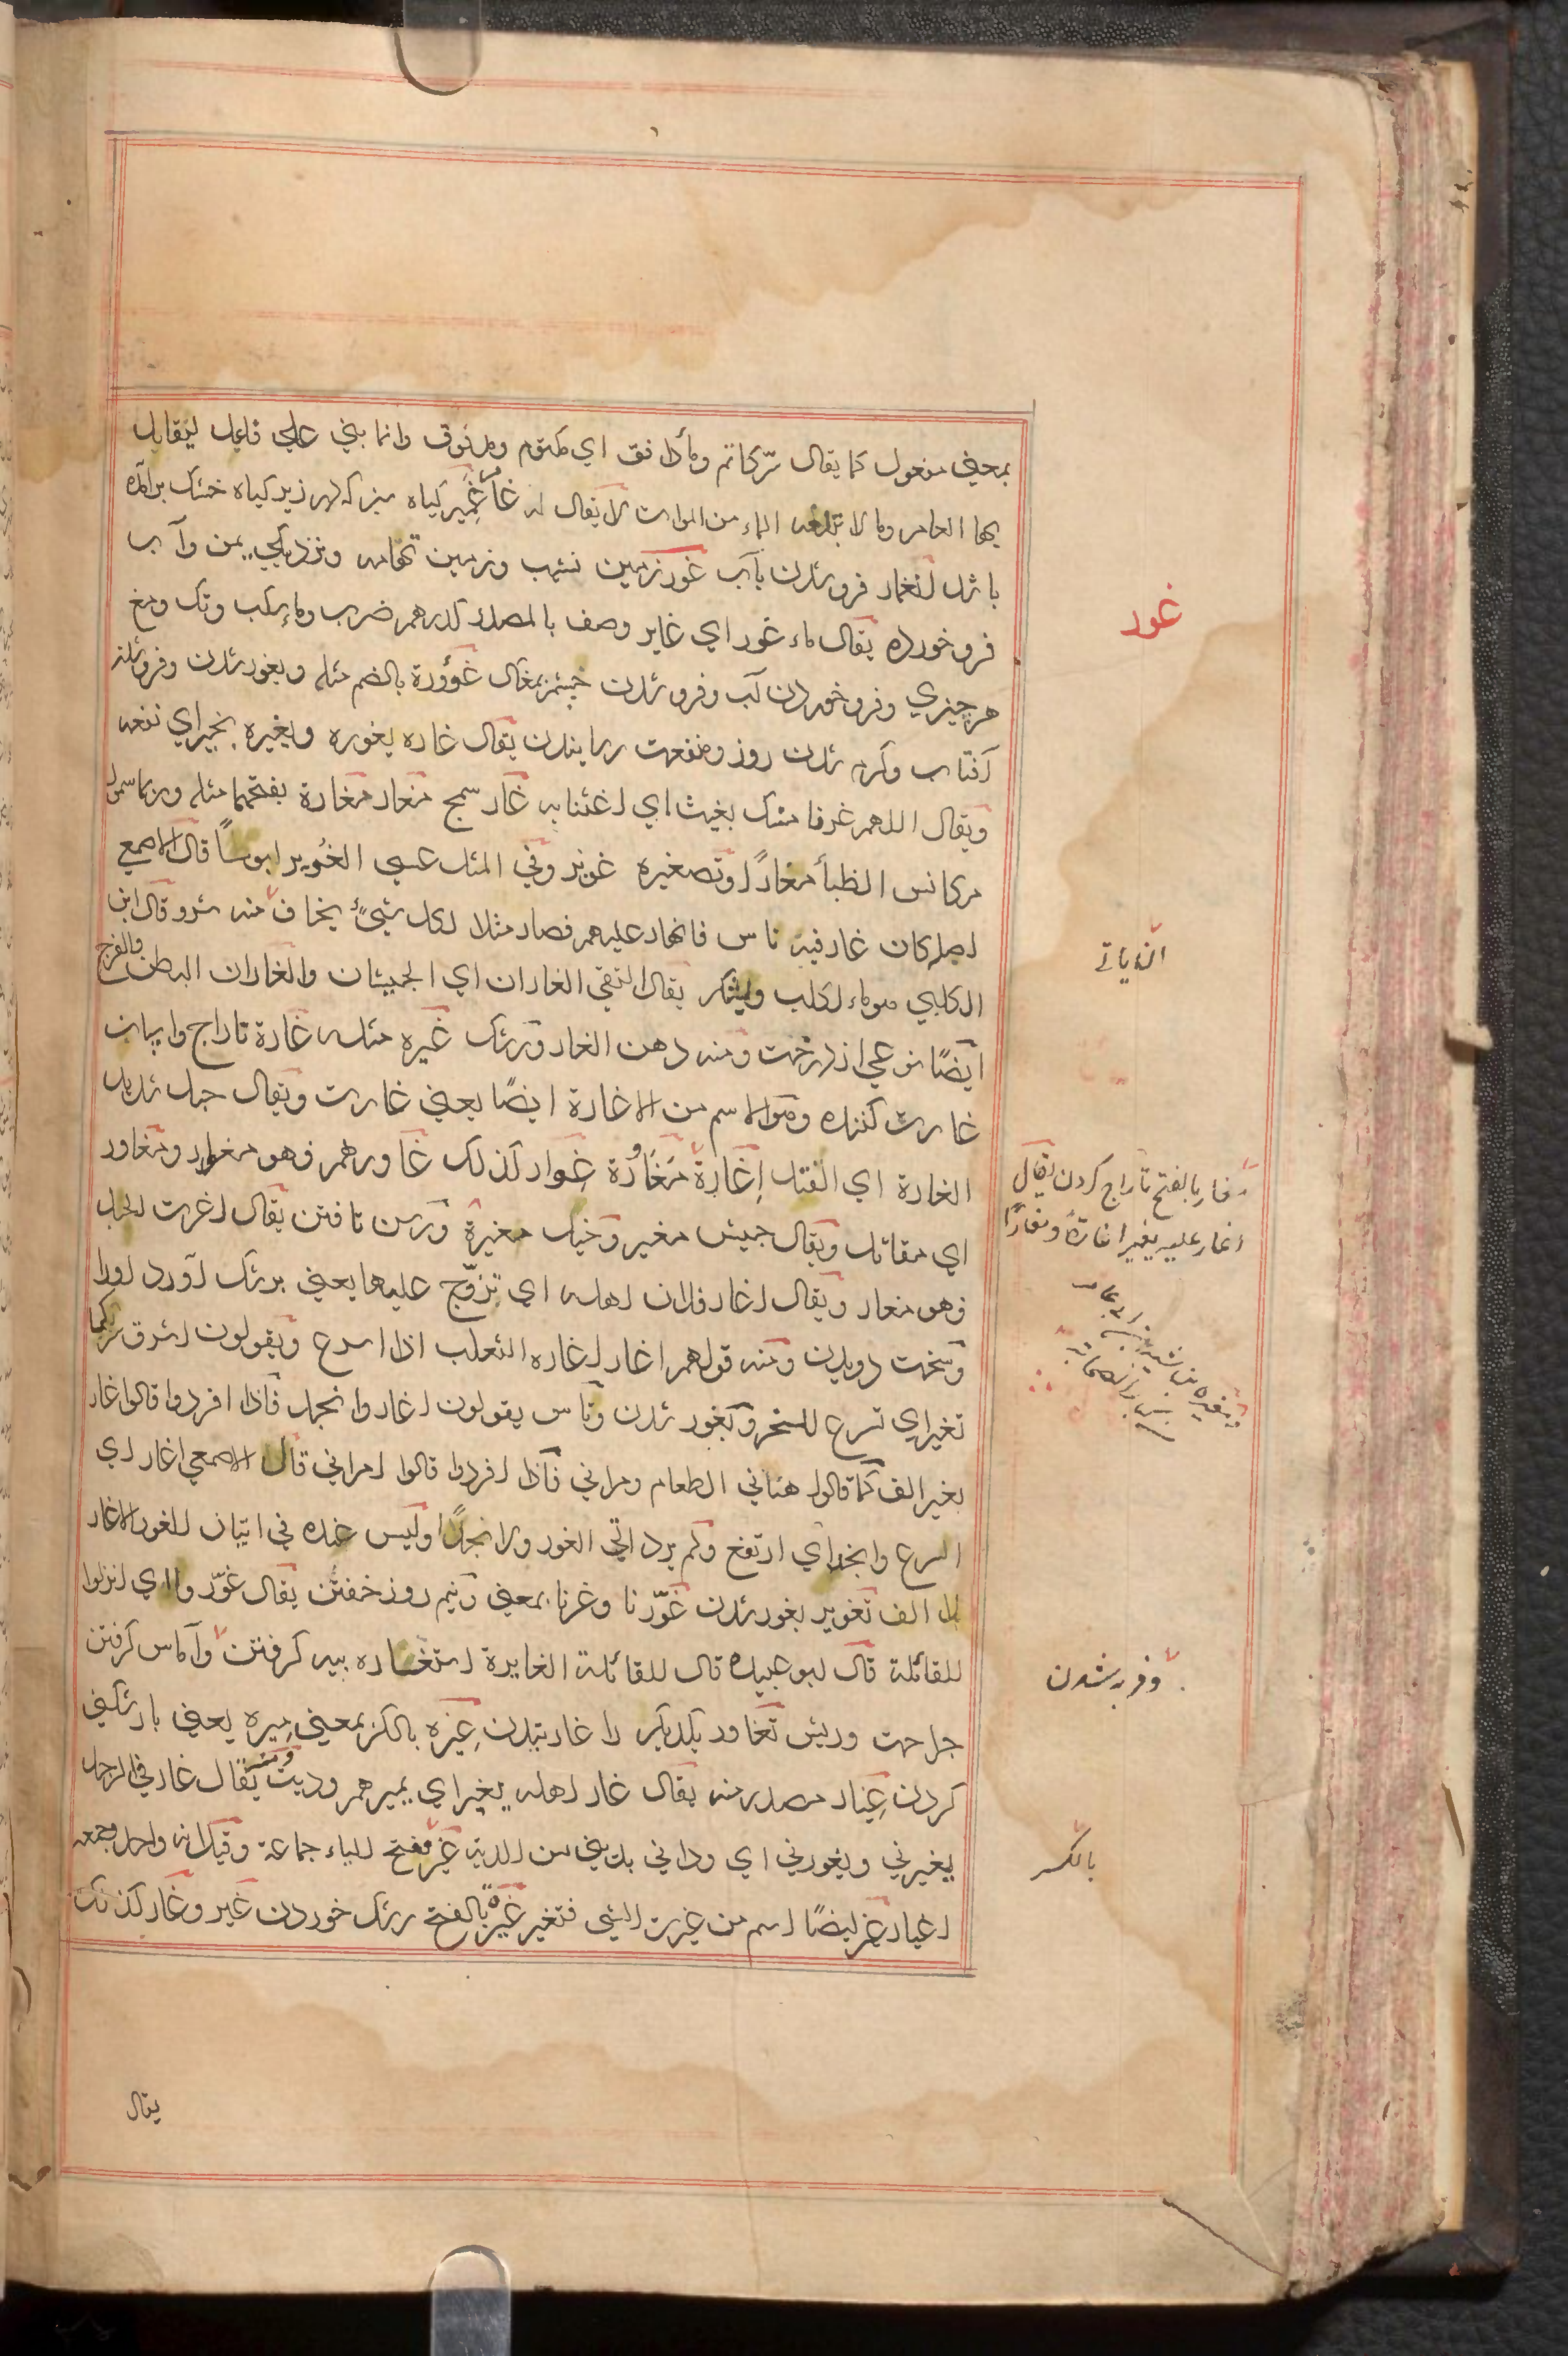 بمعنی مفعول کما یقال سرّ کاتم وماء دافق ای مکتوم ومدفوق وانما بنی علی فاعل لیقابل
بها العامر وما لا تبلغه الماء من الموات لا یقال له غامر غَمِیر کیاه سبز که در زیر کیاه خشک برآمده
باشد انغمار فرو شدن بآب غور زمین نشیب وزمین تهامه ونزدیکی یمن وآب
فرو خورده یقال ماء غور ای غایر وصف بالمصدر کدرهم ضرب وماء سکب وتک ومغ
هر چیزی وفرو خوردن آب وفرو شدن چشم بمغاک غوؤرة بالضم مثله وبغور شدن وفرو شدن
آفتاب وکرم شدن روز ومنفعت رسانیدن یقال غاره یغوره ویغیره بخیر ای نفعه
ویقال اللهم غرنا منک بغیث ای اغثنا به غار سمج مغار مغارة بفتحهما مثله وربما سموا
مکانس الظبأ مغارًا وتصغیره غویر وفی المثل عسی الغُویر ابوسًا قال الاصمعی
اصله کان غار فیه ناس فانهار علیهم فصار مثلا لکل شیءٍ یخاف منه شر وقال ابن
الکلبی هو ماء لکلب یقال التقی الغاران ای الجیشان والغاران البطن والفرج
ایضًا نوعی از درخت ومنه دهن الغار ورشک غیره مثله غارة تاراج واسپان
غارت کننده وهو الاسم من الاغارة ایضًا یعنی غارت ویقال حبل شدید
الغارة ای الفتل اِغَارة مُغَاوُرة غِوار کذلک غاورهم فهو مغاور ومغاور
ای مقاتل ویقال جیش مغیر وخیل مغیرة ورسن تافتن یقال اغرت الحبل
فهو مغار ویقال اغار فلان اهله ای تزوّج علیها یعنی برشک آورد اورا
وسخت دویدن ومنه قولهم اغار اغارة الثعلب اذا اسرع ویقولون اشرق ثبیر کیما
تغیر ای تسرع للنحر وبغور شدن وناس یقولون اغار وانجد فاذا افردوا قالوا غار
بغیر الف کما قالوا هنانی الطعام ومرانی فاذا افردوا قالوا امرانی قال الاصمعی اغار ای
اسرع وانجد ای ارتفع ولم یرد اتی الغور ولا نجدًا ولیس عنده فی اتیان الغور الا غار
بلا الف تغویر بغور شدن غوّرنا وغرنا بمعنی ونیم روز خفتن یقال غوّروا ای انزلوا
للقائلة قال ابو عبیده قال للقائلة الغایرة استغاره بیه کرفتن وآماس کرفتن
جراحت وریش تغاور یکدیکر را غارتیدن غِیره بالکسر بمعنی میره یعنی بارکشی
کردن غِیار مصدر منه یقال غار اهله یغیر ای یمیرهم ودیت ومنه یقال غارنی الرجل
یغیرنی ویغورنی ای ودانی بدیتی من الدیة غیر بفتح الیاء جماعة وقیل انه واحد وجمعه
اغیار غیر ایضًا اسم من غیرت الشی فتغیر غَیْرة بالفتح رشک خوردن غیر وغار کذلک
غور
الزیاتی
مغار بالفتح تاراج کردن یقال
اغار علیه یغیر اغارة ومغارًا
وفربه شدن
بالکسر
یقال